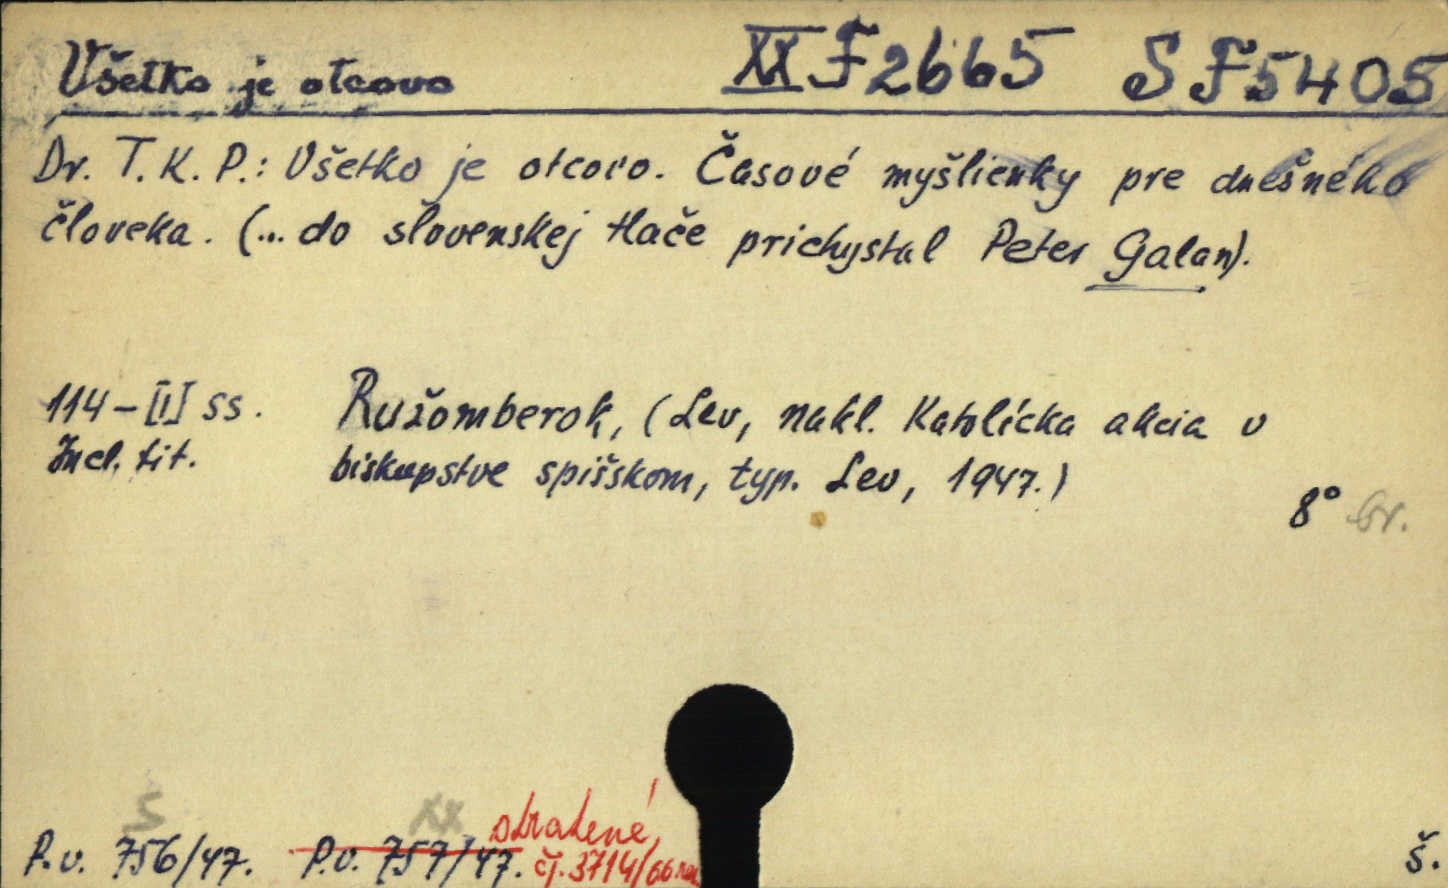 Všetko je otcovo XX F2665 SF5405
Dr. T. K. P.: Všetko je otcovo. Časové myšlienky pre dnešného
človeka. (... do slovenskej tlače prichystal Peter Galan).
114-[I] ss. Ružomberok, (Lev, nakl. Katolícka akcia v
Incl. tit. biskupstve spišskom, typ. Lev, 1947.)
8° br.
S XX stratené!
P.v. 756/47. P.v. 757/47. čj. 3714/66 š.